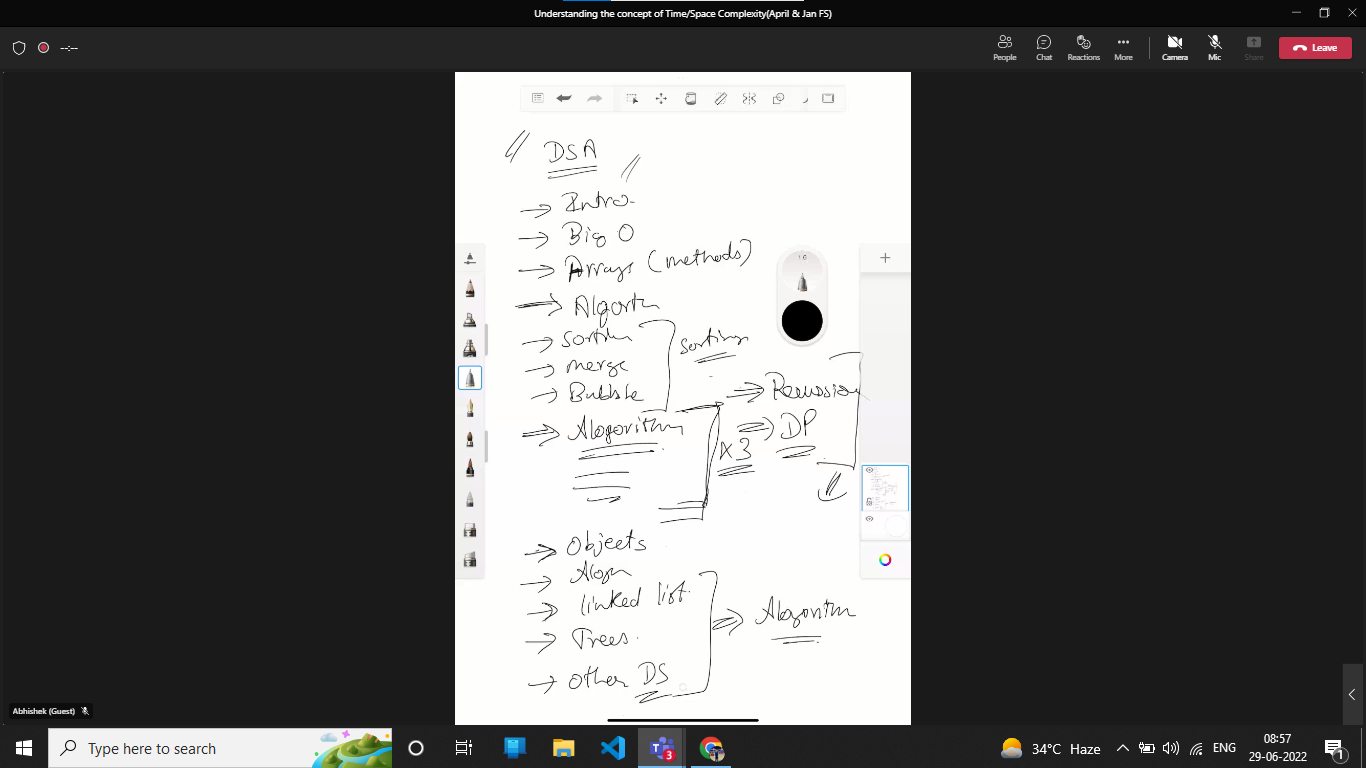 Understanding the concept of Time/Space Complexity(April & Jan FS)
--:--
People
Chat
Reactions
More
Camera
Mic
Share
Leave
DSA
→ Intro.
→ Big O
→ Arrays (methods)
→ Algortm
→ Sortin
→ merge
→ Bubble
Sorting
1.0
⇒ Recussion
⇒ Algorithm
×3
⇒ DP
→ Objects
→ Algm
→ linked list.
→ Trees.
→ other DS
⇒ Algorithm
Abhishek (Guest)
Type here to search
3
34°C Haze
ENG
08:57
29-06-2022
1